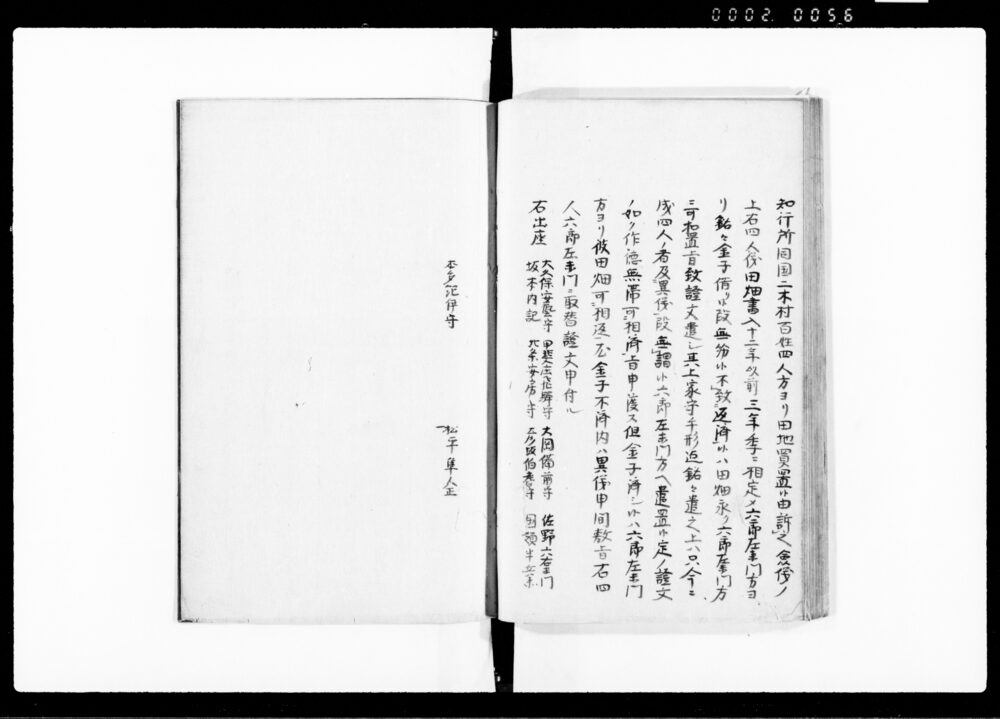 0002.0056
知行所同国二木村百姓四人方ヨリ田地買置候由訴之僉儀ノ
上右四人儀田畑書入十二年以前三年季ニ相定メ六郎左衛門方ヨ
リ銘々金子借リ候段無紛候不致返済候ハヽ田畑永ク六郎左衛門方
ニ可相置旨致證文遣シ其上家守手形迄銘々遣之上ハ只今ニ
成四人ノ者及異儀段無謂候六郎左衛門方ヘ遣置候定ノ證文
ノ如ク作徳無滞可相済旨申渡ス但金子済シ候ハヽ六郎左衛門
方ヨリ彼田畑可相返之金子不済内ハ異儀申間敷旨右四
人六郎左衛門ニ取替證文申付ル
右出座
大久保安藝守 甲斐庄飛騨守 大岡備前守 佐野六右衛門
坂本内記 北条安房守 彦坂伯耆守 国領半兵衛
本多紀伊守
松平隼人正